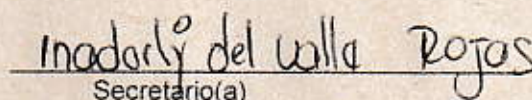 Inadorly del valle Rojas
Secretario(a)